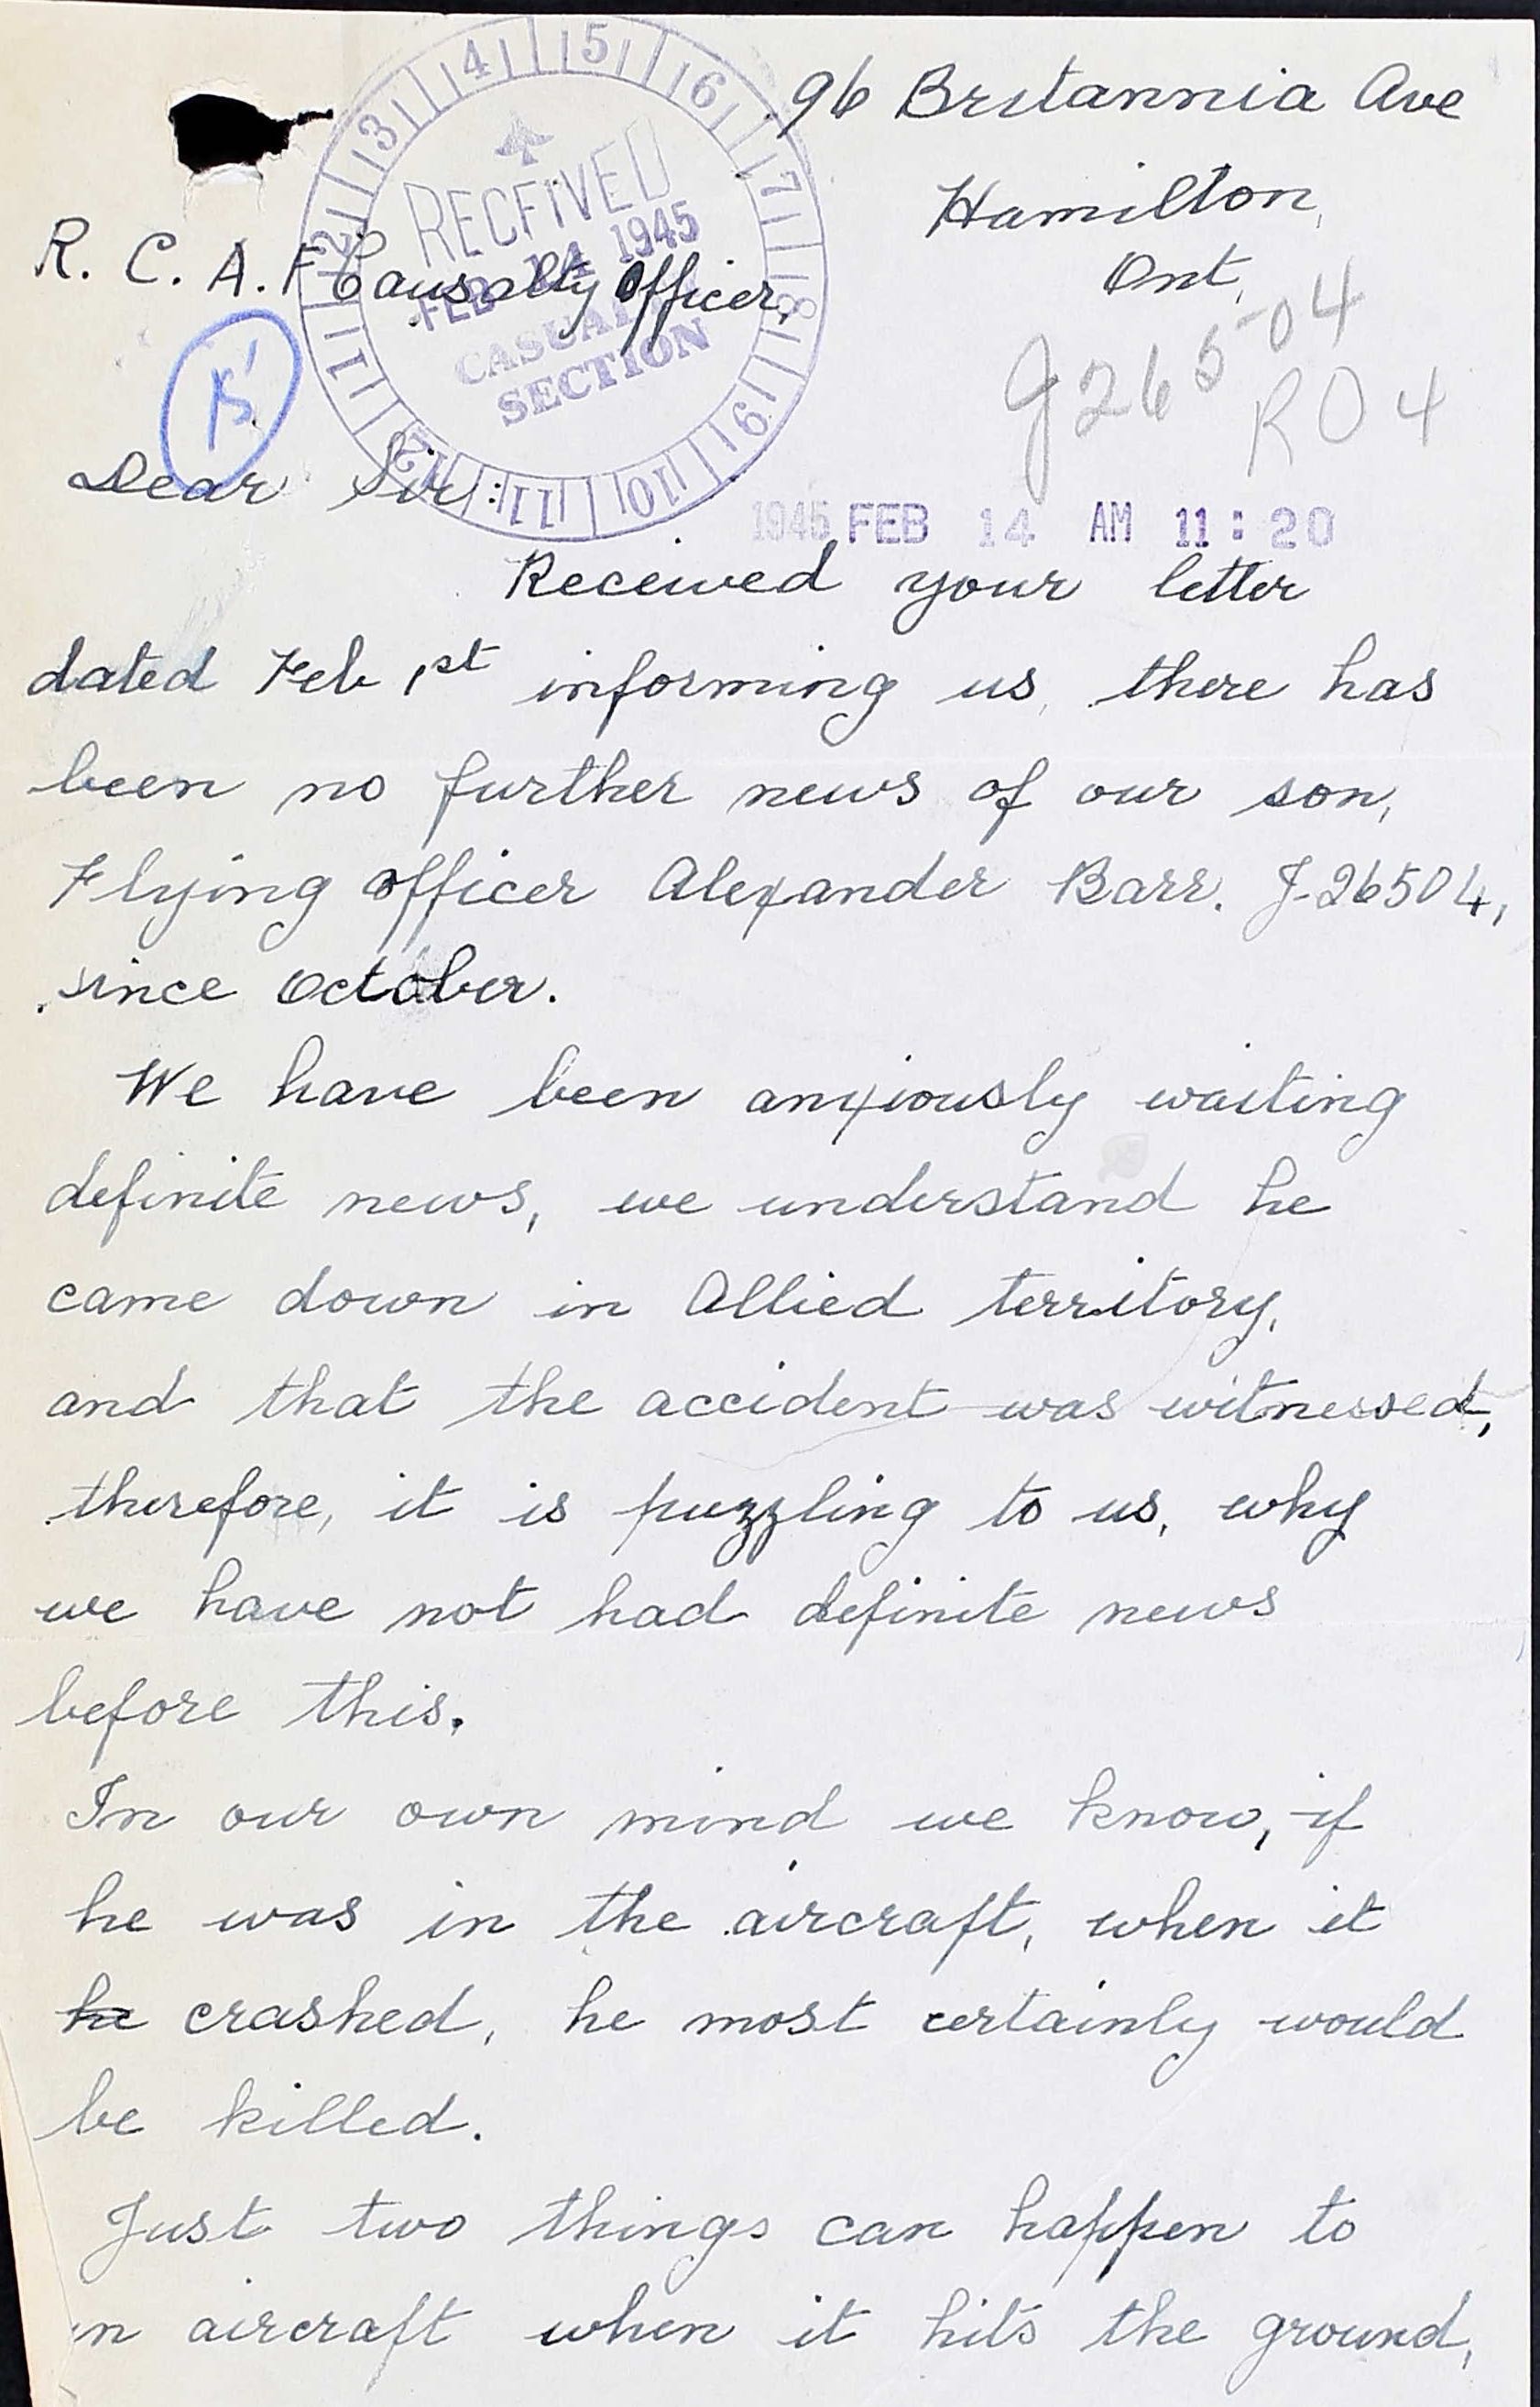 96 Britannia Ave
Hamilton,
Ont,
R. C. A. F Causalty Officer,
4 5 6 7 8 9 10 11 12 1 2 3
RECEIVED
FEB 14 1945
CASUALTY
SECTION
J26504
RO4
15
Dear Sir:
1945 FEB 14 AM 11:20
Received your letter
dated Feb 1st informing us, there has
been no further news of our son,
Flying Officer Alexander Barr. J-26504,
since October.
We have been anxiously waiting
definite news, we understand he
came down in Allied territory,
and that the accident was witnessed,
therefore, it is puzzling to us, why
we have not had definite news
before this.
In our own mind we know, if
he was in the aircraft, when it
he crashed, he most certainly would
be killed.
Just two things can happen to
an aircraft when it hits the ground,